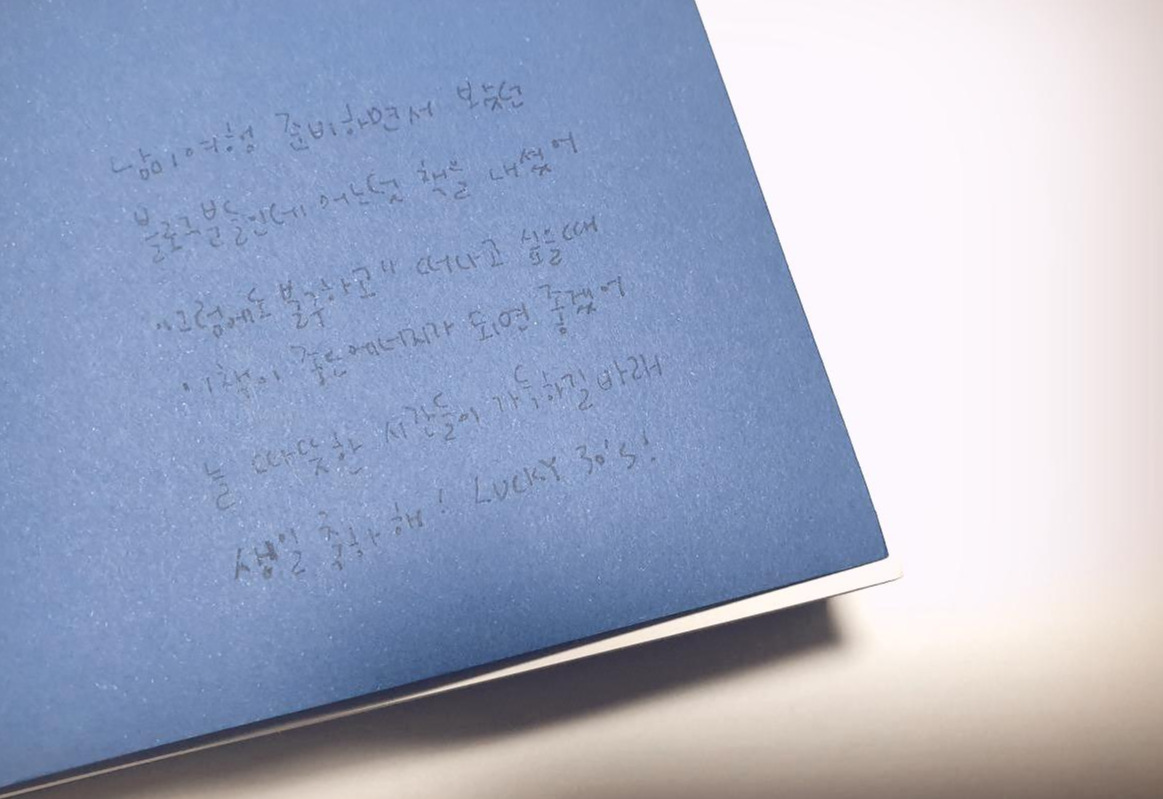 남미여행 준비하면서 보았던
블로그분들인데 어느덧 책을 내셨어
"그럼에도 불구하고" 떠나고 싶을때
이책이 좋은에너지가 되면 좋겠어
늘 따뜻한 시간들이 가득하길 바라
생일 축하해! LUCKY 30's!